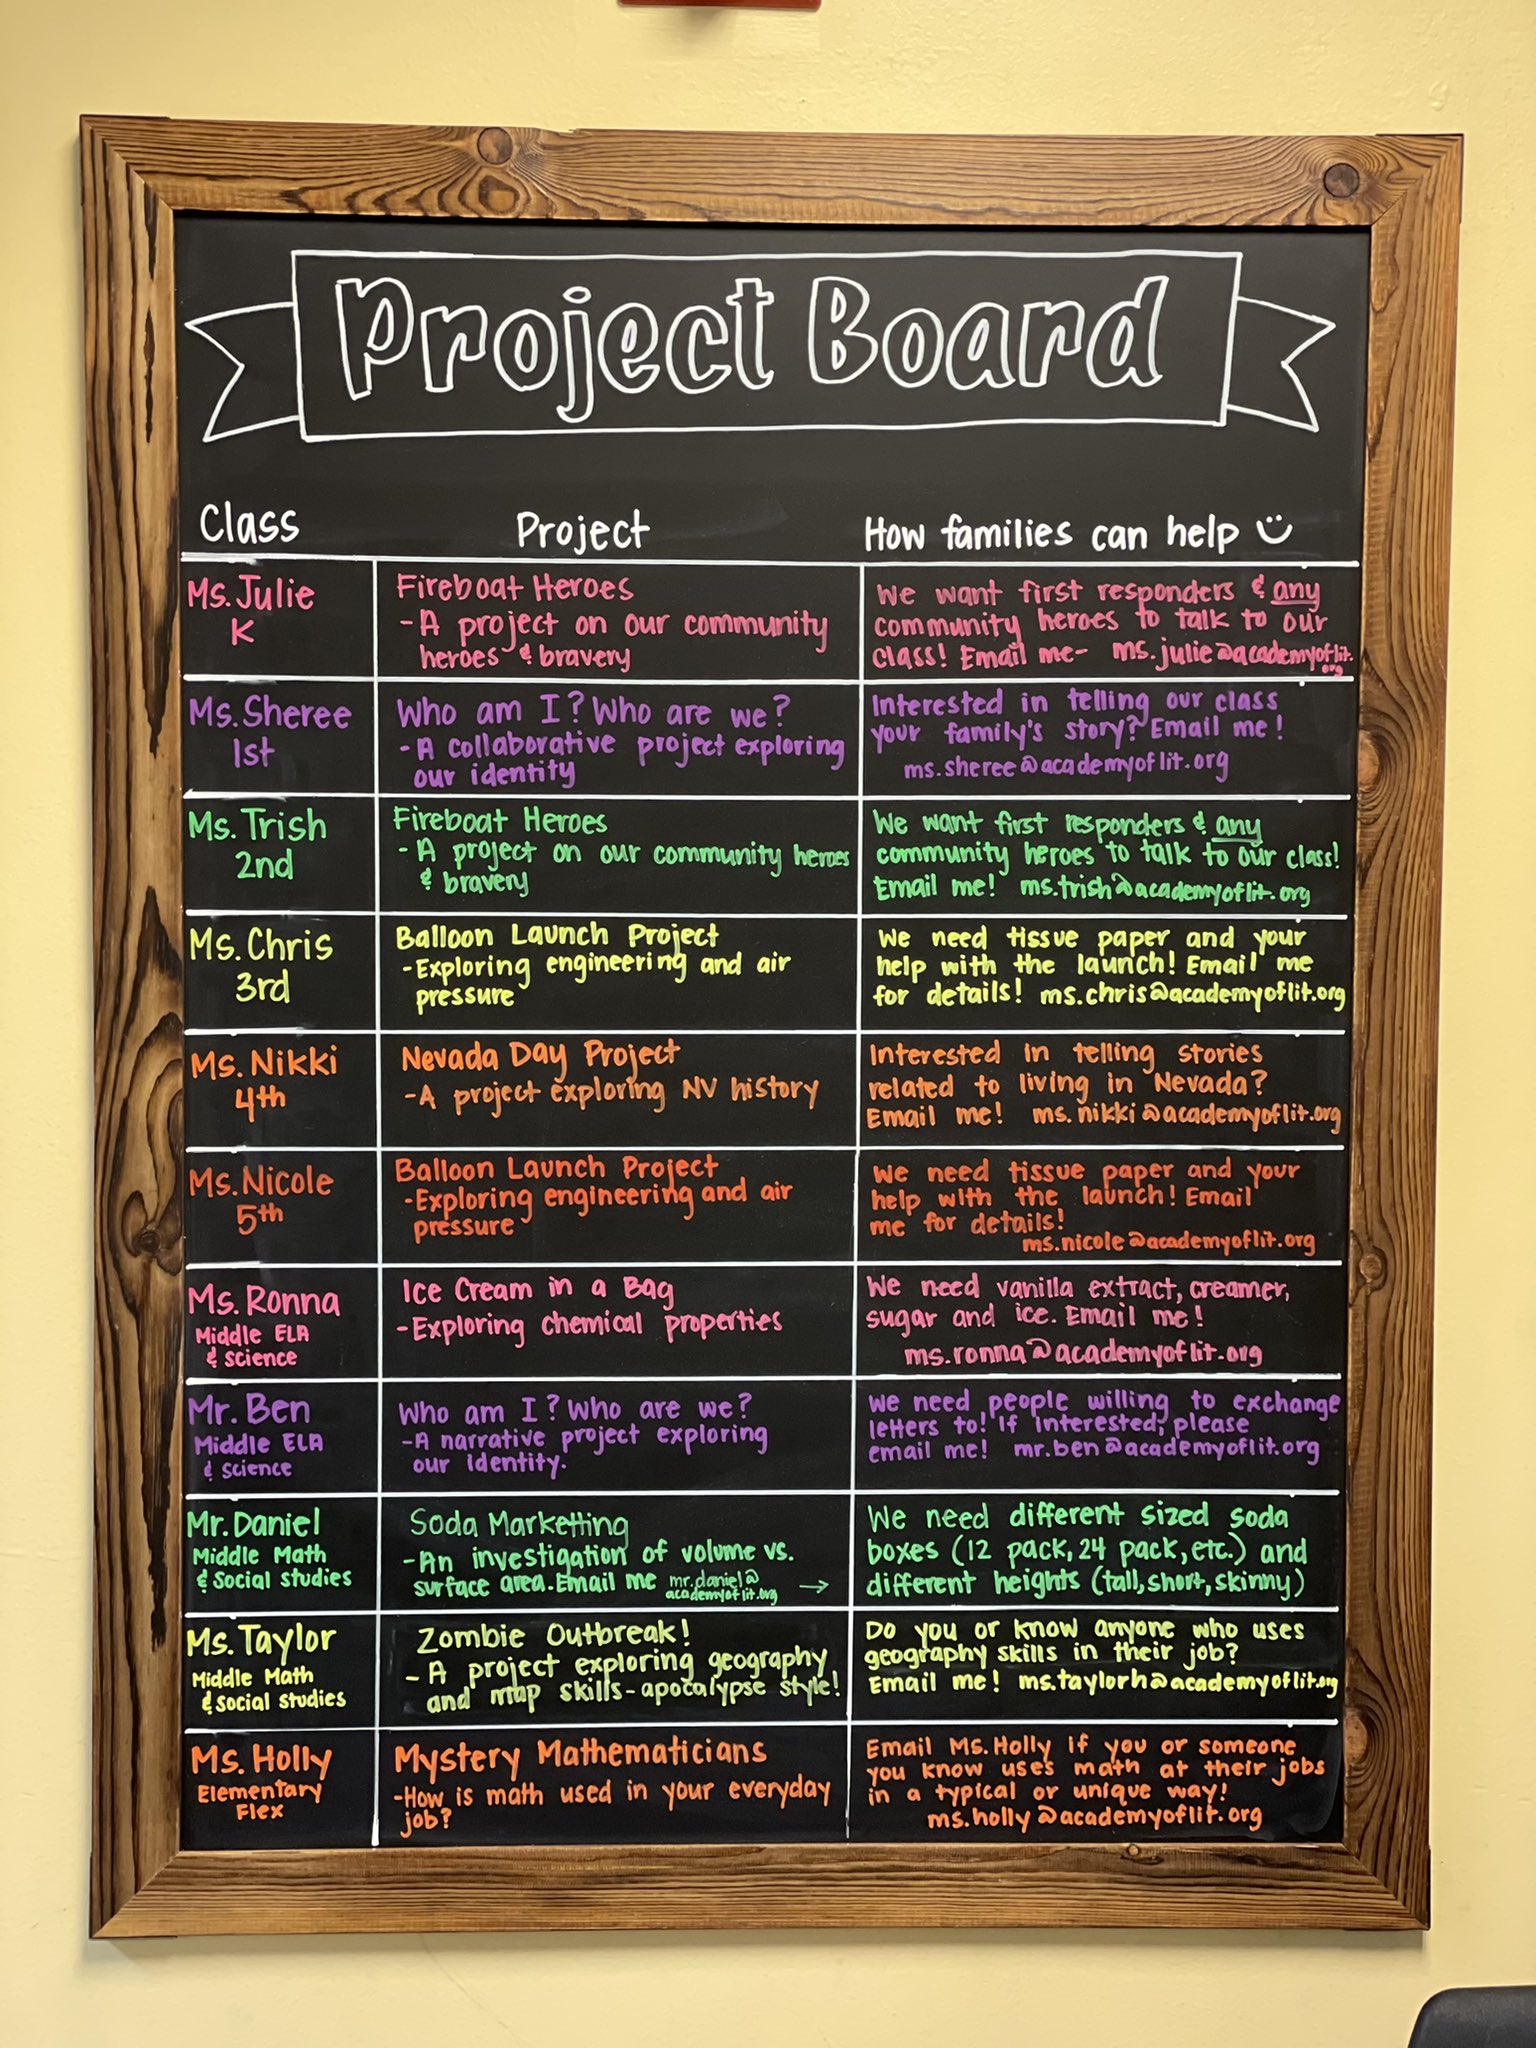 Project Board
Class
Project
How families can help
Ms. Julie
K
Fireboat Heroes
- A project on our community
heroes & bravery
We want first responders & any
community heroes to talk to our
class! Email me- ms.julie@academyoflit.
org
Ms. Sheree
1st
Who am I? Who are we?
- A collaborative project exploring
our identity
Interested in telling our class
your family's story? Email me!
ms.sheree@academyoflit.org
Ms. Trish
2nd
Fireboat Heroes
- A project on our community heroes
& bravery
We want first responders & any
community heroes to talk to our class!
Email me! ms.trish@academyoflit.org
Ms. Chris
3rd
Balloon Launch Project
- Exploring engineering and air
pressure
We need tissue paper and your
help with the launch! Email me
for details! ms.chris@academyoflit.org
Ms. Nikki
4th
Nevada Day Project
- A project exploring NV history
Interested in telling stories
related to living in Nevada?
Email me! ms.nikki@academyoflit.org
Ms. Nicole
5th
Balloon Launch Project
- Exploring engineering and air
pressure
We need tissue paper and your
help with the launch! Email
me for details!
ms.nicole@academyoflit.org
Ms. Ronna
Middle ELA
& Science
Ice Cream in a Bag
- Exploring chemical properties
We need vanilla extract, creamer,
sugar and ice. Email me!
ms.ronna@academyoflit.org
Mr. Ben
Middle ELA
& Science
Who am I? Who are we?
- A narrative project exploring
our identity.
We need people willing to exchange
letters to! If interested, please
email me! mr.ben@academyoflit.org
Mr. Daniel
Middle Math
& Social Studies
Soda Marketting
- An investigation of volume vs.
surface area. Email me mr.daniel@
academyoflit.org →
We need different sized soda
boxes (12 pack, 24 pack, etc.) and
different heights (tall, short, skinny)
Ms. Taylor
Middle Math
& Social Studies
Zombie Outbreak!
- A project exploring geography
and map skills - apocalypse style!
Do you or know anyone who uses
geography skills in their job?
Email me! ms.taylorh@academyoflit.org
Ms. Holly
Elementary
Flex
Mystery Mathematicians
- How is math used in your everyday
job?
Email Ms. Holly if you or someone
you know uses math at their jobs
in a typical or unique way!
ms.holly@academyoflit.org